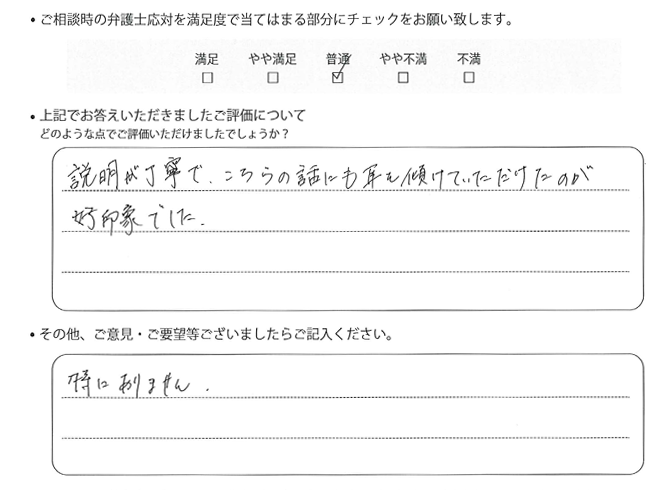 • ご相談時の弁護士応対を満足度で当てはまる部分にチェックをお願い致します。
満足 やや満足 普通 やや不満 不満
□ □ ☑ □ □
• 上記でお答えいただきましたご評価について
どのような点でご評価いただけましたでしょうか？
説明が丁寧で、こちらの話にも耳を傾けていただけたのが
好印象でした。
• その他、ご意見・ご要望等ございましたらご記入ください。
特にありません。